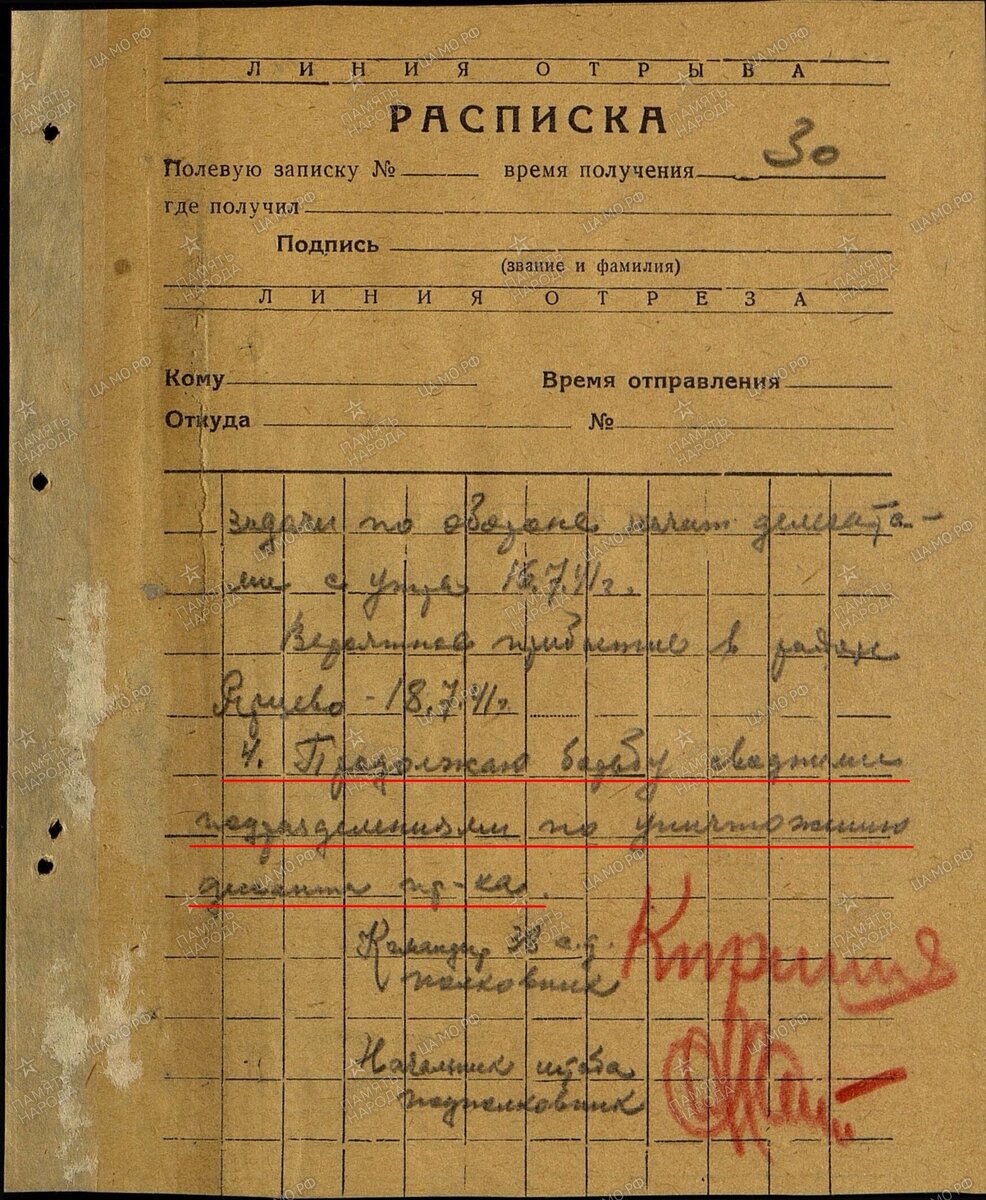 ЛИНИЯ ОТРЫВА
РАСПИСКА
30
Полевую записку № время получения
где получил
Подпись
(звание и фамилия)
ЛИНИЯ ОТРЕЗА
Кому Время отправления
Откуда №
задачи по обороне
с утра 16.7.41г.
Вероятное прибытие в район
Ярцево - 18.7.41г.
4. Продолжаю борьбу сводными
подразделениями по уничтожению
десанта пр-ка.
Командир 38 с.д.
полковник Кириллов
Начальник штаба
подполковник
ПАМЯТЬ НАРОДА
ЦА МО РФ